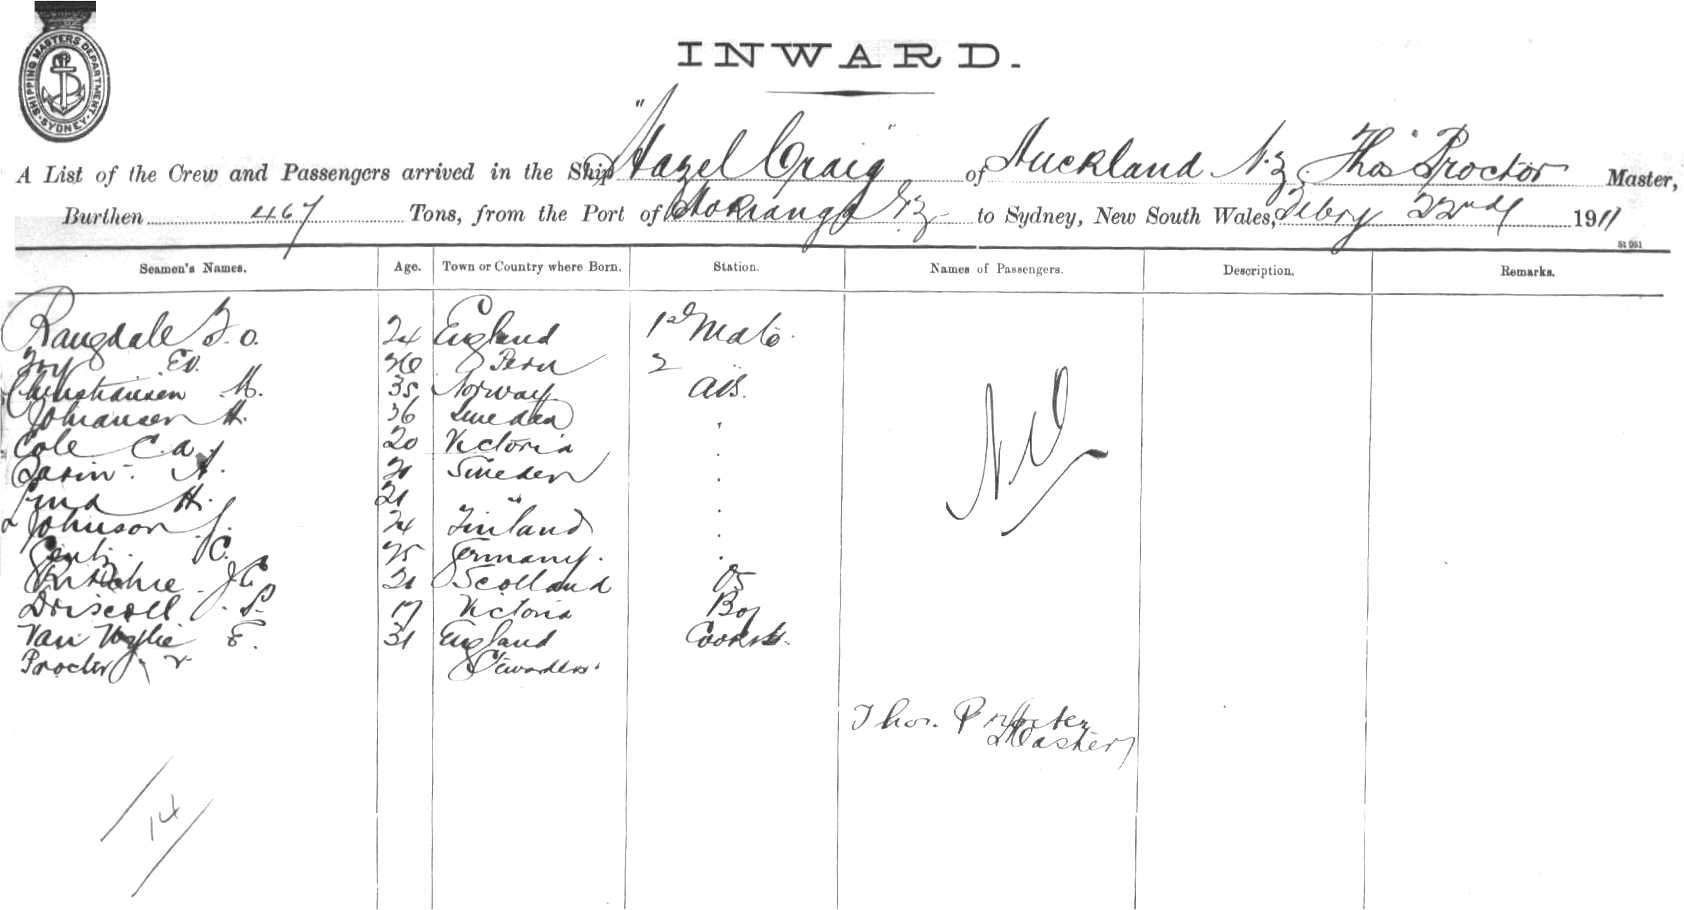 SHIPPING MASTERS DEPARTMENT SYDNEY
INWARD.
A List of the Crew and Passengers arrived in the Ship "Hazel Craig" of Auckland N.Z. Thos Proctor Master,
Burthen 467 Tons, from the Port of Hokianga N.Z. to Sydney, New South Wales, Febry 22nd 1911
St 951
Seamen's Names. Age. Town or Country where Born. Station. Names of Passengers. Description. Remarks.
24 England 1st Mate.
Ed. 26 Peru 2
Christiansen M. 35 Norway AB.
Johansen H. 36 Sweden
Cole C.A. 20 Victoria
A. 21 Sweden
Lind H. 21 "
Johnson J. 24 Finland
C. 25 Germany.
Ritchie J.C. 21 Scotland OS
Driscoll J. P. 17 Victoria Boy
Van Wylie E. 31 England Cook &
Proctor Stewardess.
Nil
Thos. Proctor
Master
14